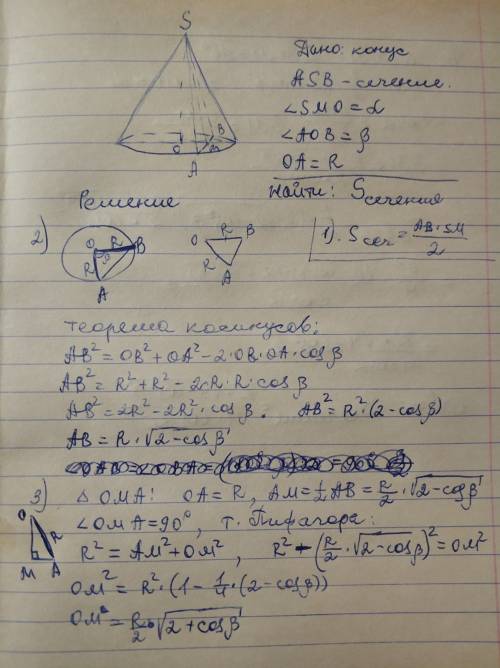 S
Дано: конус
ASB - сечение.
∠SMO = α
∠AOB = β
OA = R
Найти: Sсечения
O M B
A
Решение
1). Sсеч = AB·SM/2
2)
O R B
R β
A
O R B
R
A
теорема косинусов:
AB² = OB² + OA² - 2·OB·OA·cos β
AB² = R² + R² - 2·R·R·cos β
AB² = 2R² - 2R²·cos β. AB² = R²·(2-cos β)
AB = R·√2-cos β
3) △ OMA: OA = R, AM = 1/2 AB = R/2·√2-cos β
O R
M A
∠OMA = 90°, т. Пифагора:
R² = AM² + OM², R² - (R/2·√2-cos β)² = OM²
OM² = R²·(1 - 1/4·(2-cos β))
OM = R/2 √2+cos β